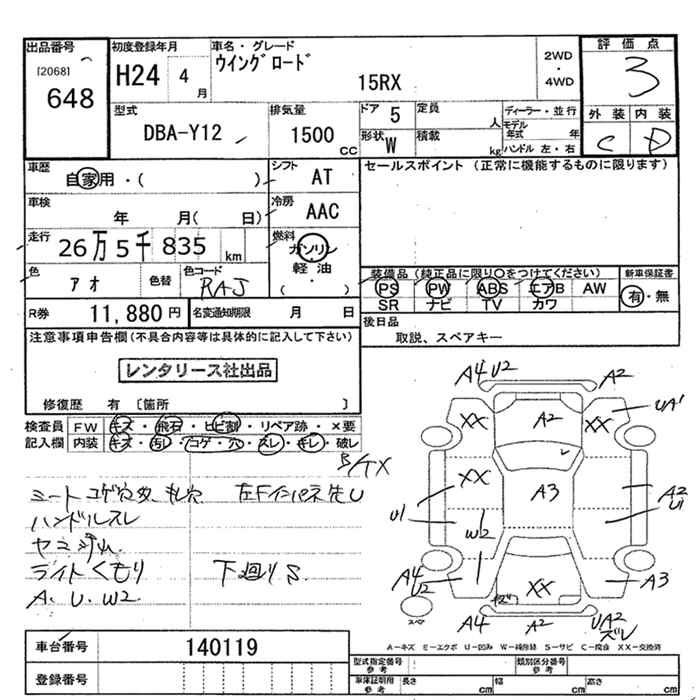 出品番号
[2068]
648
初度登録年月
H24 4 月
車名・グレード
ウイングロード
15RX
2WD
・
4WD
評価点
3
外装 内装
C D
型式
DBA-Y12
排気量
1500 CC
ドア 5
定員 人
形状 W
積載 kg
ディーラー・並行
モデル年式 年
ハンドル 左・右
車歴
自家用・( )
シフト
AT
車検
年 月( 日)
冷房
AAC
走行
26万5千835 km
燃料
ガソリン
軽油
( )
色
アオ
色替
色コード
RAJ
R券
11,880円
名変通知期限 月 日
セールスポイント (正常に機能するものに限ります)
装備品(純正品に限り〇をつけてください)
PS PW ABS エアB AW
SR ナビ TV カワ
新車保証書
有・無
後日品
取説、スペアキー
注意事項申告欄(不具合内容等は具体的に記入して下さい)
レンタリース社出品
修復歴 有 〔箇所 〕
検査員記入欄
FW キズ・飛石・ヒビ割・リペア跡・×要
内装 キズ・汚レ・コゲ・穴・スレ・キレ・破レ
ハンドルスレ
ライトくもり
下廻りS
A、U、W2
車台番号
140119
登録番号
A4 U2
A2
XX
A2
XX
UA1
XX
A3
A2
U1
U1
W2
A4
U2
XX
A3
スペア
A4
A2
UA2
ズレ
A－キズ E－エクボ U－凹み W－補修跡 S－サビ C－腐食 XX－交換済
型式指定番号
参考
類別区分番号
参考
車庫証明用
参考
長さ cm
幅 cm
高さ cm